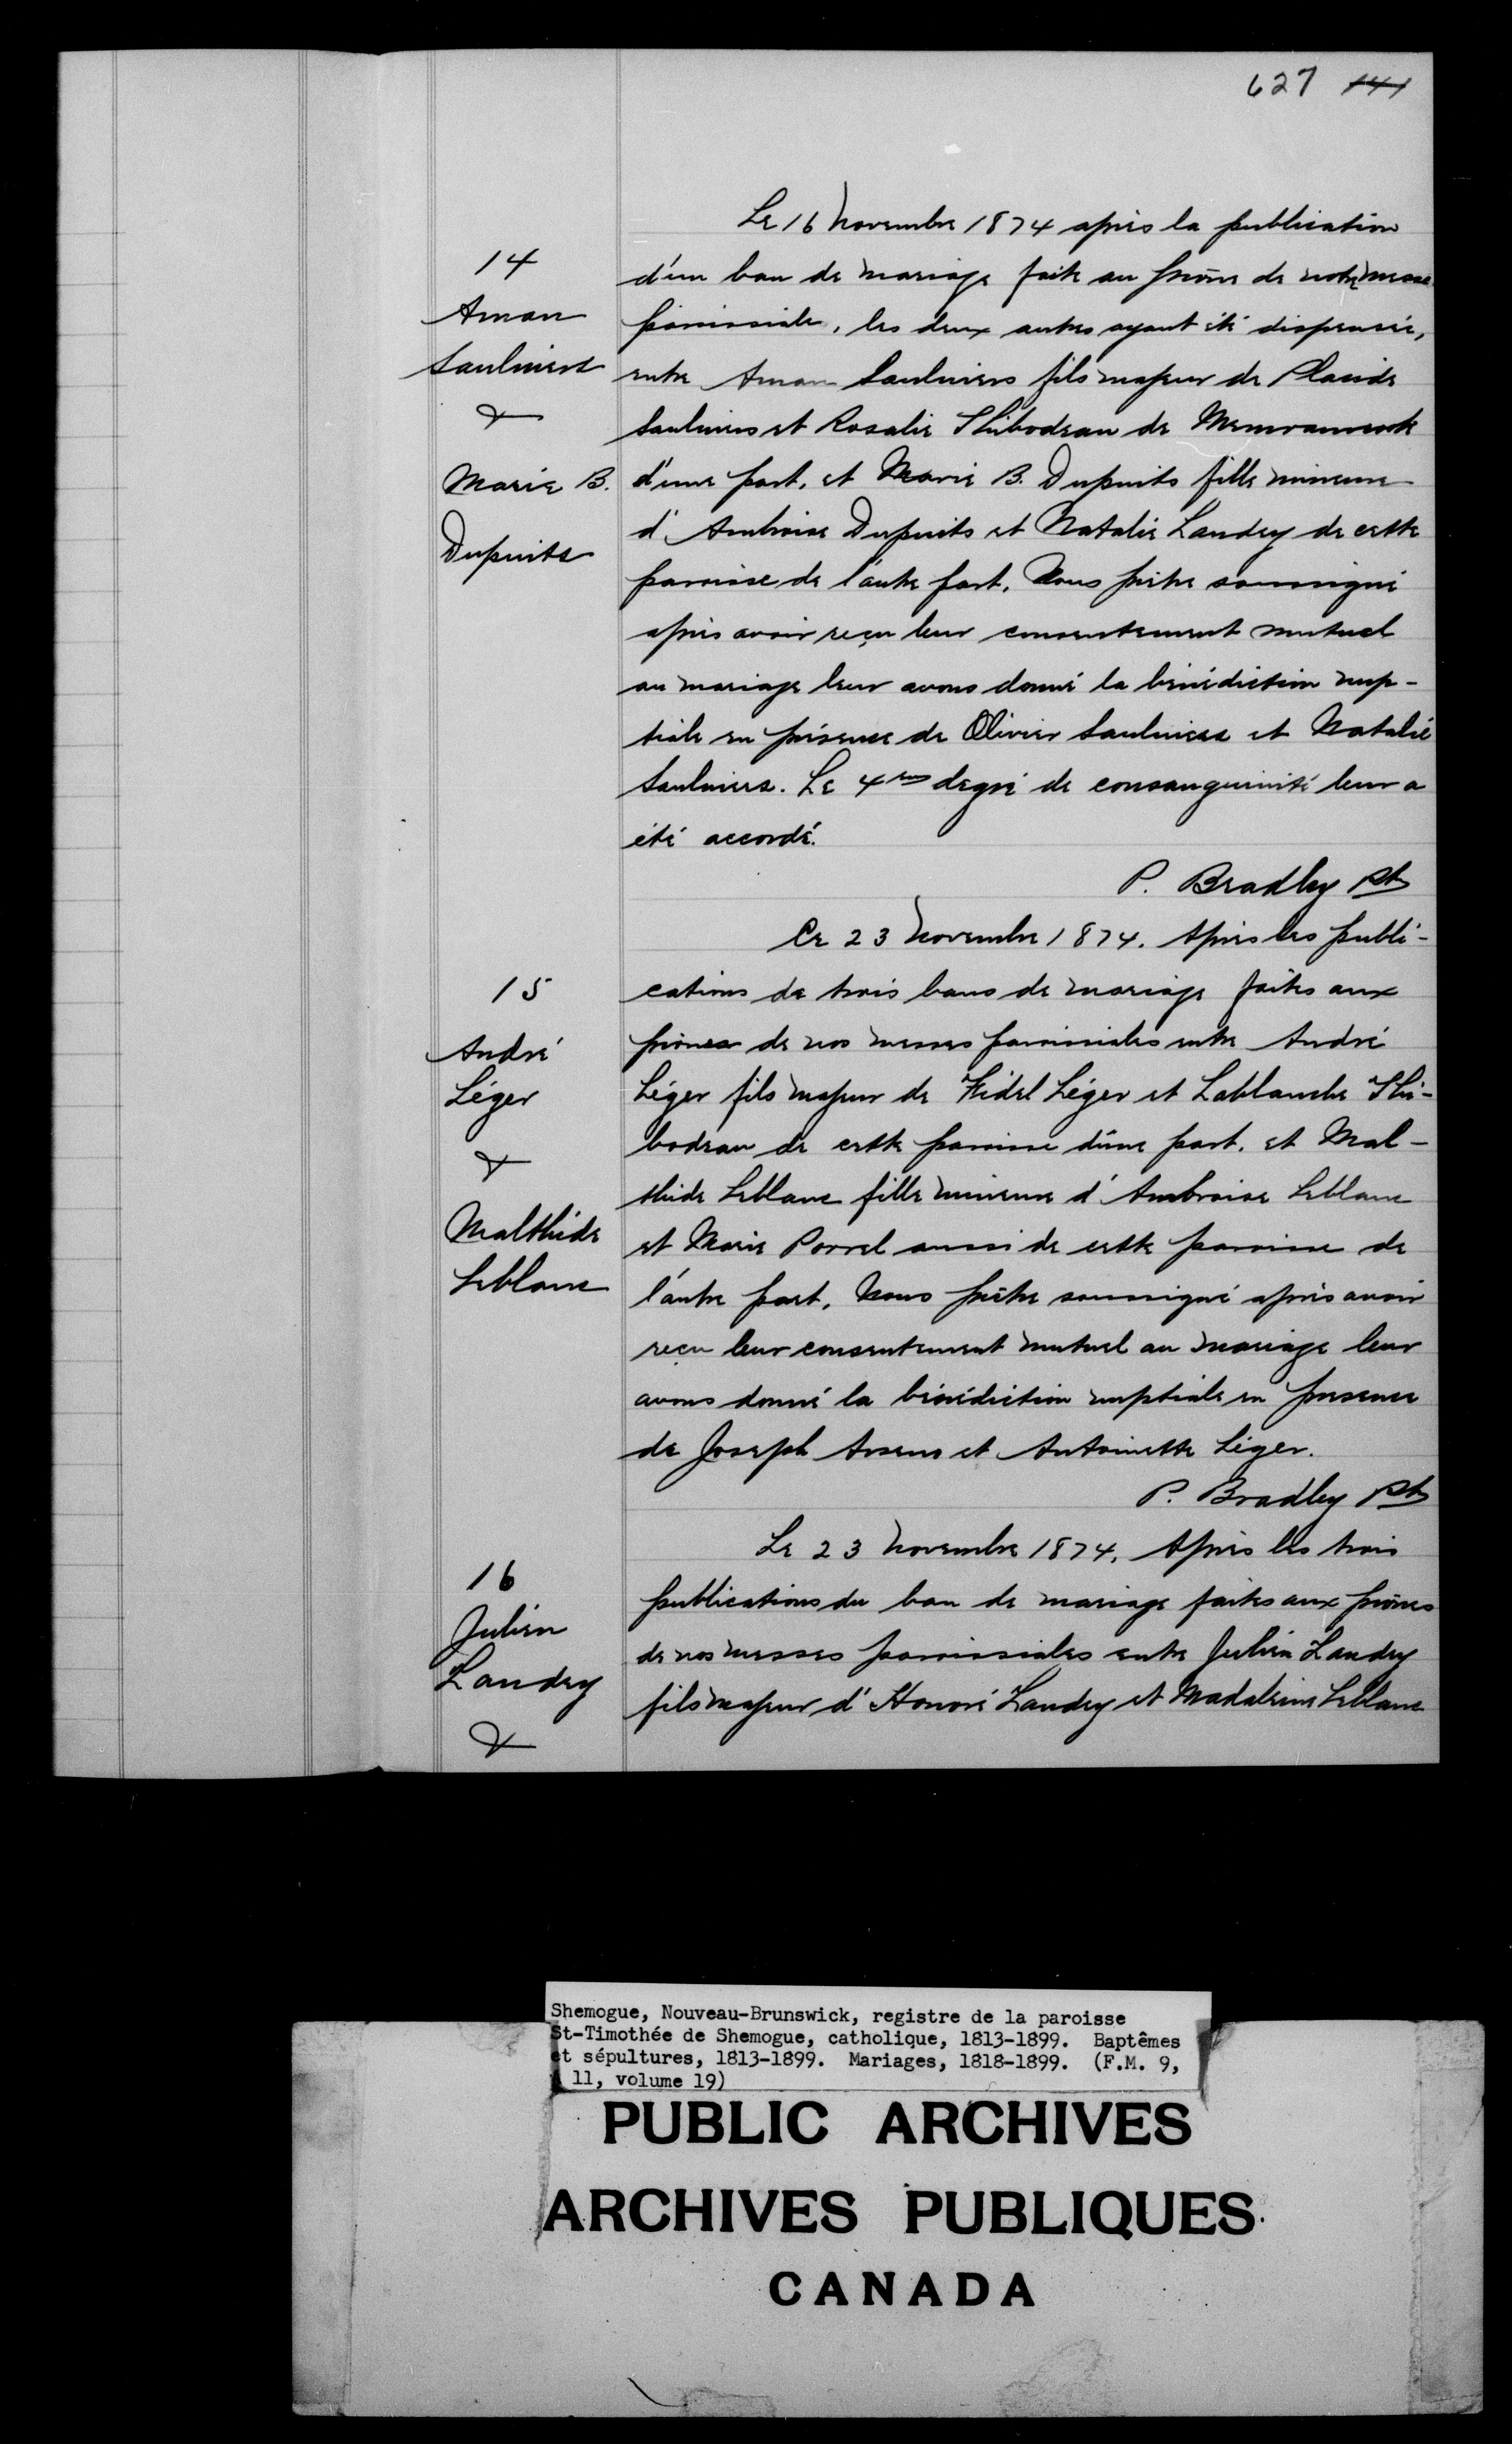 627 141
Le 16 Novembre 1874 après la publication
d'un ban de mariage faite au prône de notre messe
paroissiale, les deux autres ayant été dispensée,
entre Aman Saulniers fils majeur de Placide
Saulniers et Rosalie Thibodeau de Memramcook
d'une part, et Marie B. Dupuits fille mineure
d'Ambroise Dupuits et Natalie Landry de cette
paroisse de l'autre part, Nous prêtre soussigné
après avoir reçu leur consentement mutuel
au mariage leur avons donné la bénédiction nup-
tiale en présence de Olivier Saulniers et Natalie
Saulniers. Le 4me degré de consanguinité leur a
été accordé.
P. Bradley Pt
14
Aman
Saulniers
&
Marie B.
Dupuits
Ce 23 Novembre 1874. Après les publi-
cations de trois bans de mariage faites aux
prônes de nos messes paroissiales entre André
Léger fils majeur de Fidel Léger et Lablanche Thi-
bodeau de cette paroisse d'une part, et Mal-
thide Leblanc fille mineure d'Ambroise Leblanc
et Marie Porrel aussi de cette paroisse de
l'autre part, Nous prêtre soussigné après avoir
reçu leur consentement mutuel au mariage leur
avons donné la bénédiction nuptiale en presence
de Joseph Arsene et Antoinette Léger.
P. Bradley Pt
15
André
Léger
&
Malthide
Leblanc
Le 23 Novembre 1874, Après les trois
publications du ban de mariage faites aux prônes
de nos messes paroissiales entre Julien Landry
fils majeur d'Honoré Landry et Madaleine Leblanc
16
Julien
Landry
&
Shemogue, Nouveau-Brunswick, registre de la paroisse
St-Timothée de Shemogue, catholique, 1813-1899. Baptêmes
et sépultures, 1813-1899. Mariages, 1818-1899. (F.M. 9,
11, volume 19)
PUBLIC ARCHIVES
ARCHIVES PUBLIQUES
CANADA